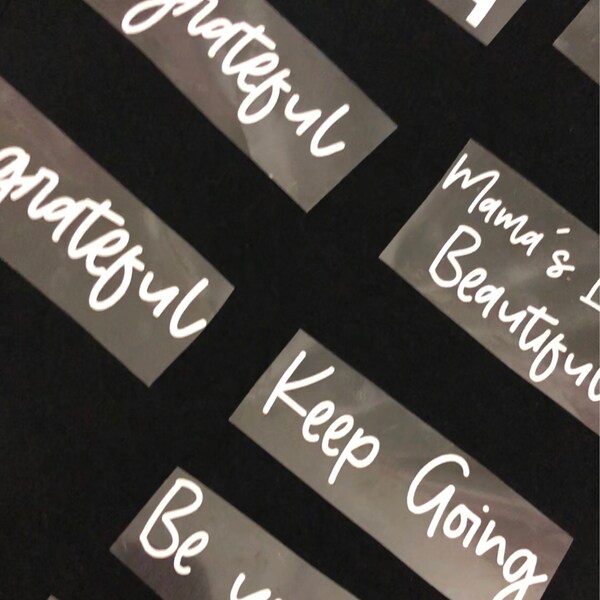 grateful
grateful
Mama's
Beautiful
Keep Going
Be